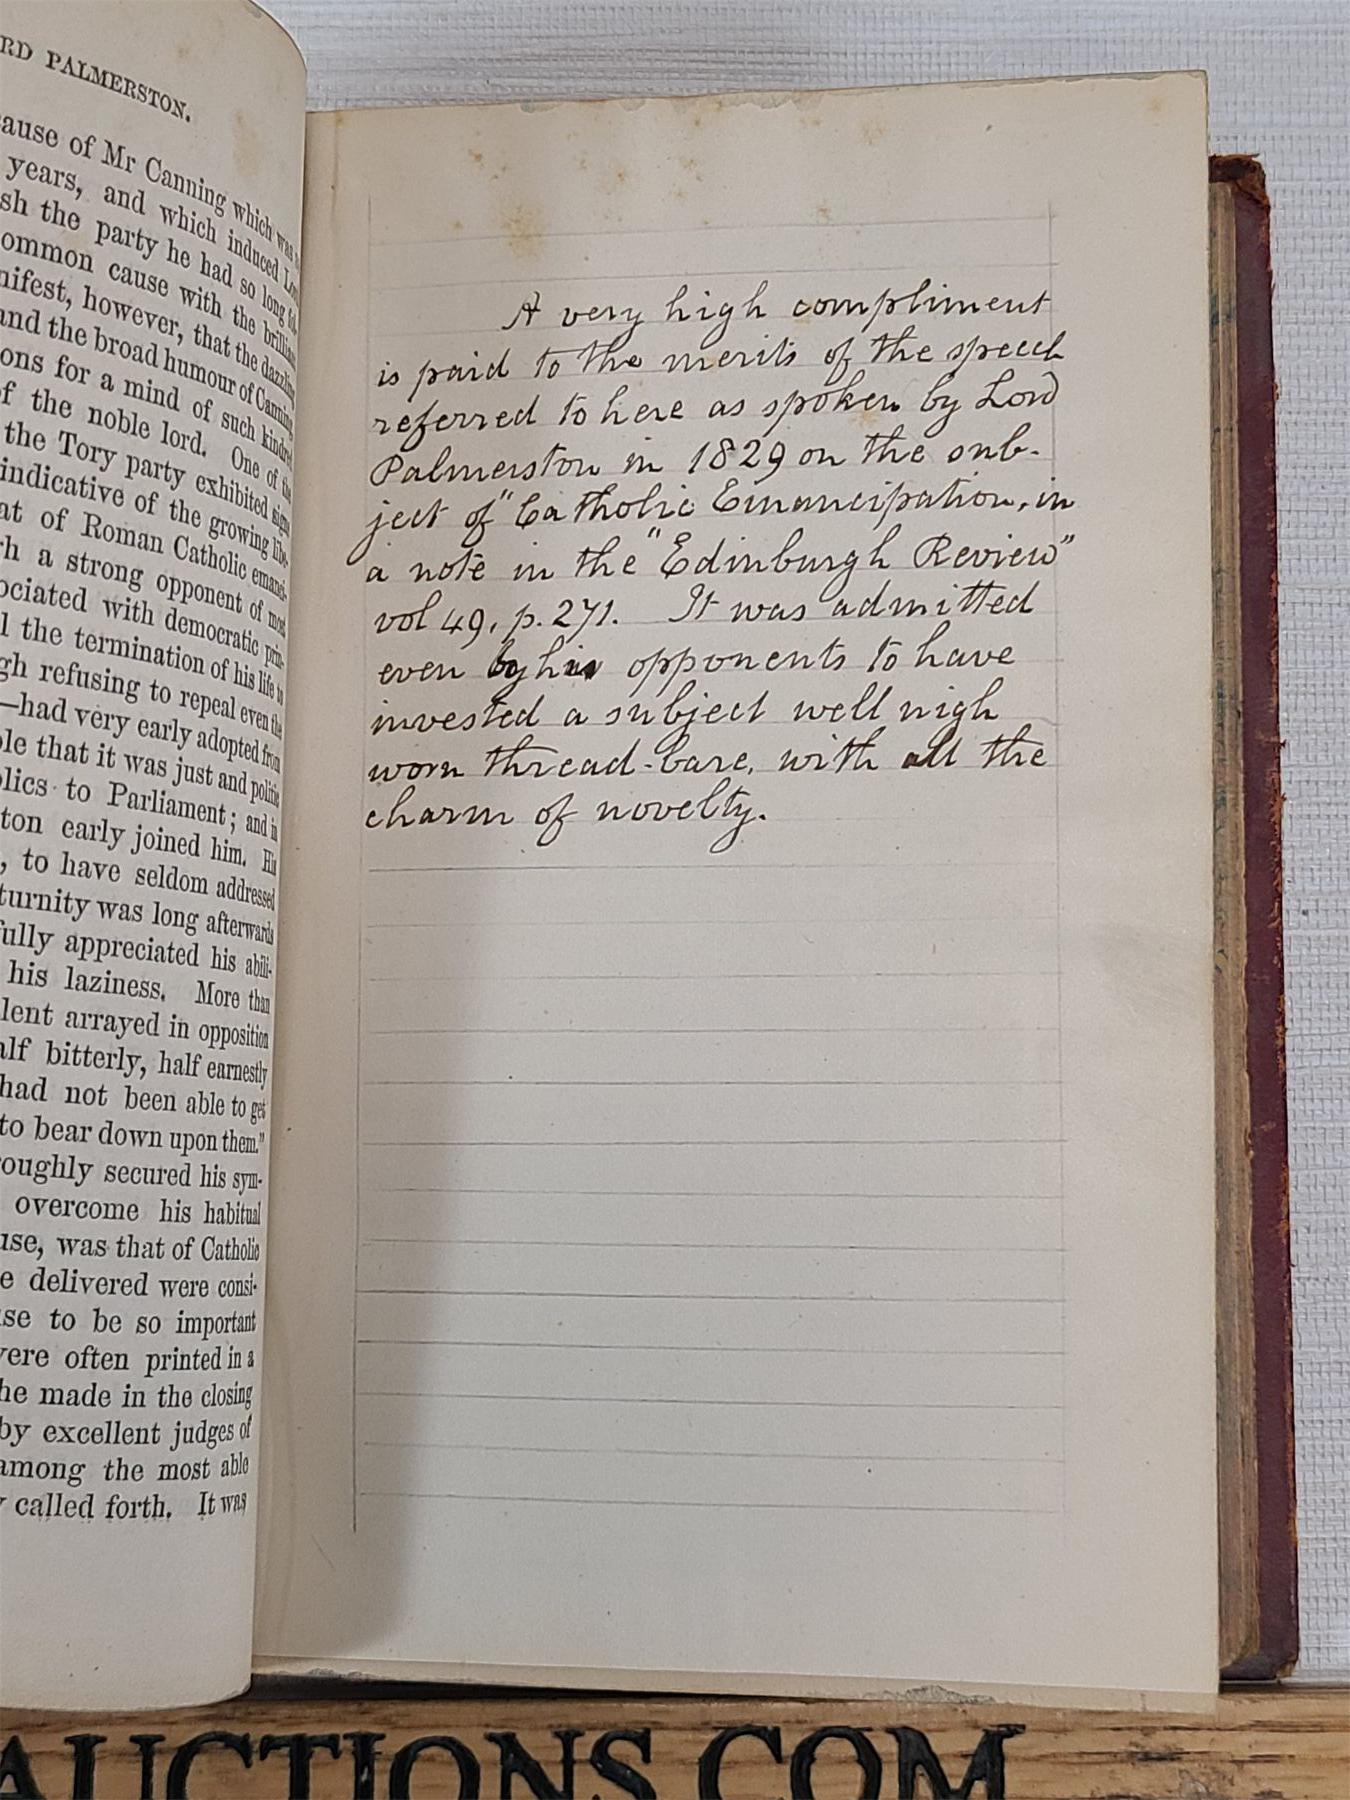 RD PALMERSTON.
ause of Mr Canning which was
years, and which induced Lord
sh the party he had so long
ommon cause with the brilliant
nifest, however, that the dazzling
and the broad humour of Canning
ons for a mind of such kindred
f the noble lord. One of the
the Tory party exhibited signs
indicative of the growing libe-
at of Roman Catholic emanci-
h a strong opponent of most
ociated with democratic prin-
l the termination of his life to
gh refusing to repeal even the
—had very early adopted from
ole that it was just and politic
olics to Parliament; and in
ton early joined him. His
, to have seldom addressed
turnity was long afterwards
fully appreciated his abili-
his laziness. More than
lent arrayed in opposition
alf bitterly, half earnestly
had not been able to get
to bear down upon them."
oughly secured his sym-
overcome his habitual
use, was that of Catholic
e delivered were consi-
use to be so important
were often printed in a
he made in the closing
by excellent judges of
among the most able
y called forth. It was
A very high compliment
is paid to the merits of the speech
referred to here as spoken by Lord
Palmerston in 1829 on the sub-
ject of "Catholic Emancipation, in
a note in the "Edinburgh Review"
vol 49, p. 271. It was admitted
even by his opponents to have
invested a subject well nigh
worn thread-bare, with all the
charm of novelty.
AUCTIONS.COM